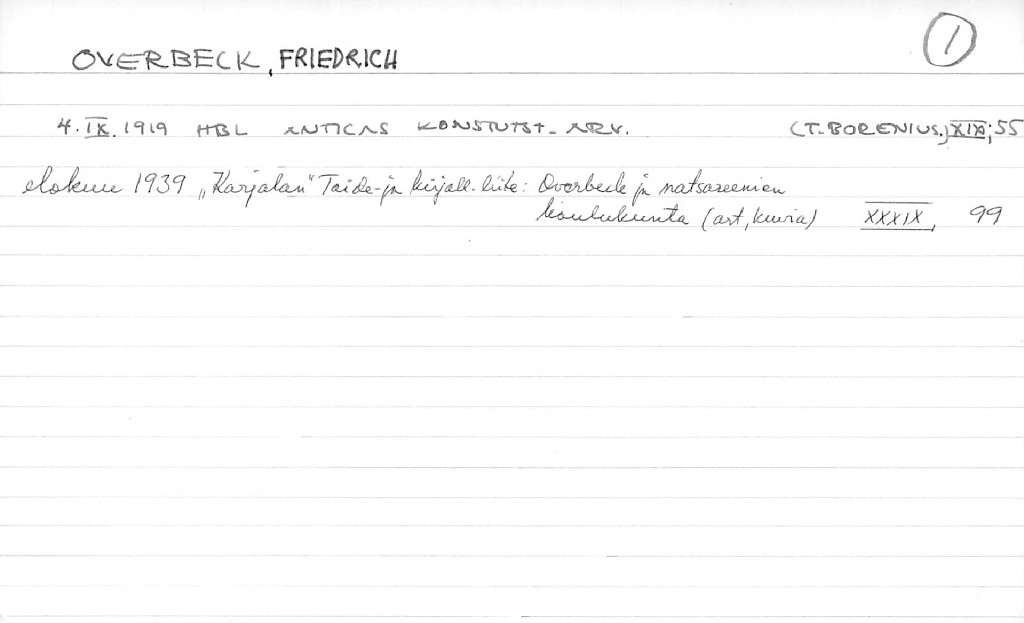 OVERBECK, FRIEDRICH
1
4. IX. 1919 HBL ANTICAS KONSTUTST. ARV. (T. BORENIUS.) XIX; 55
elokuu 1939 „Karjalan" Taide- ja kirjall. liite: Overbeck ja natsareenien
koulukunta (art, kuvia) XXXIX, 99